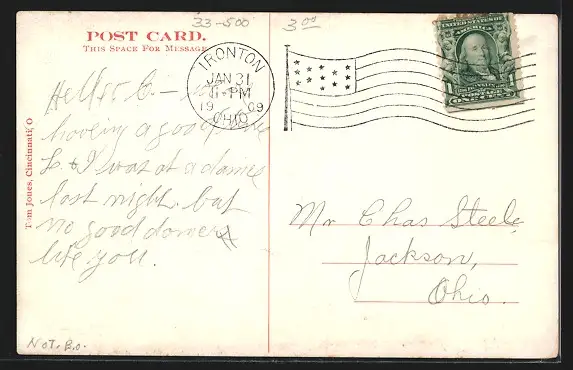 33-500
3.00
POST CARD.
THIS SPACE FOR MESSAGE
IRONTON
JAN 31
1-PM
1909
OHIO
UNITED STATES OF AMERICA
ONE CENT
Hello C. –
having a good time
L. & I was at a dance
last night. but
no good dancers
like you.
Mr Chas Steele,
Jackson,
Ohio.
Tom Jones, Cincinnati, O
NOT. B.O.